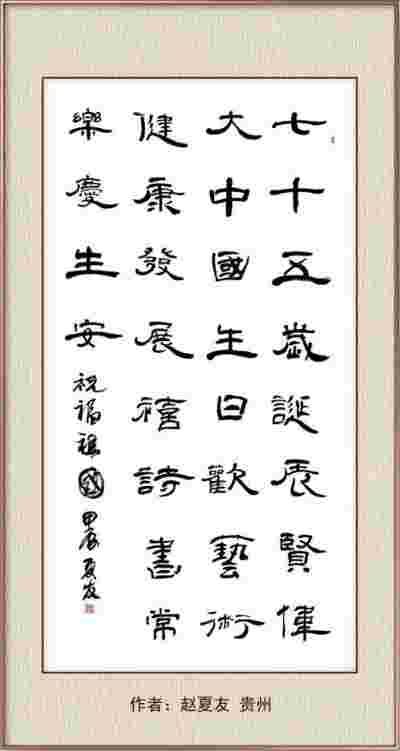 七十五歲誕辰賢偉
大中國生日歡藝術
健康發展禧詩書常
樂慶生安
祝福祖国 甲辰夏友
作者：赵夏友 贵州